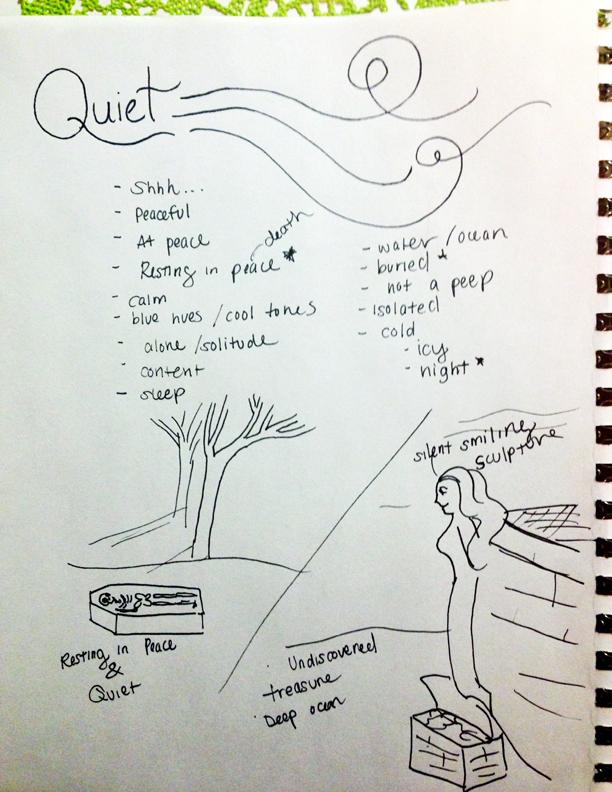 Quiet
- Shhh...
- Peaceful
- At peace
- Resting in peace *
death
- calm
- blue hues / cool tones
- alone / solitude
- content
- sleep
- water / ocean
- buried *
- not a peep
- isolated
- cold
- icy
- night *
silent smiling
sculpture
Resting in Peace
&
Quiet
· Undiscovered
treasure
· Deep ocean